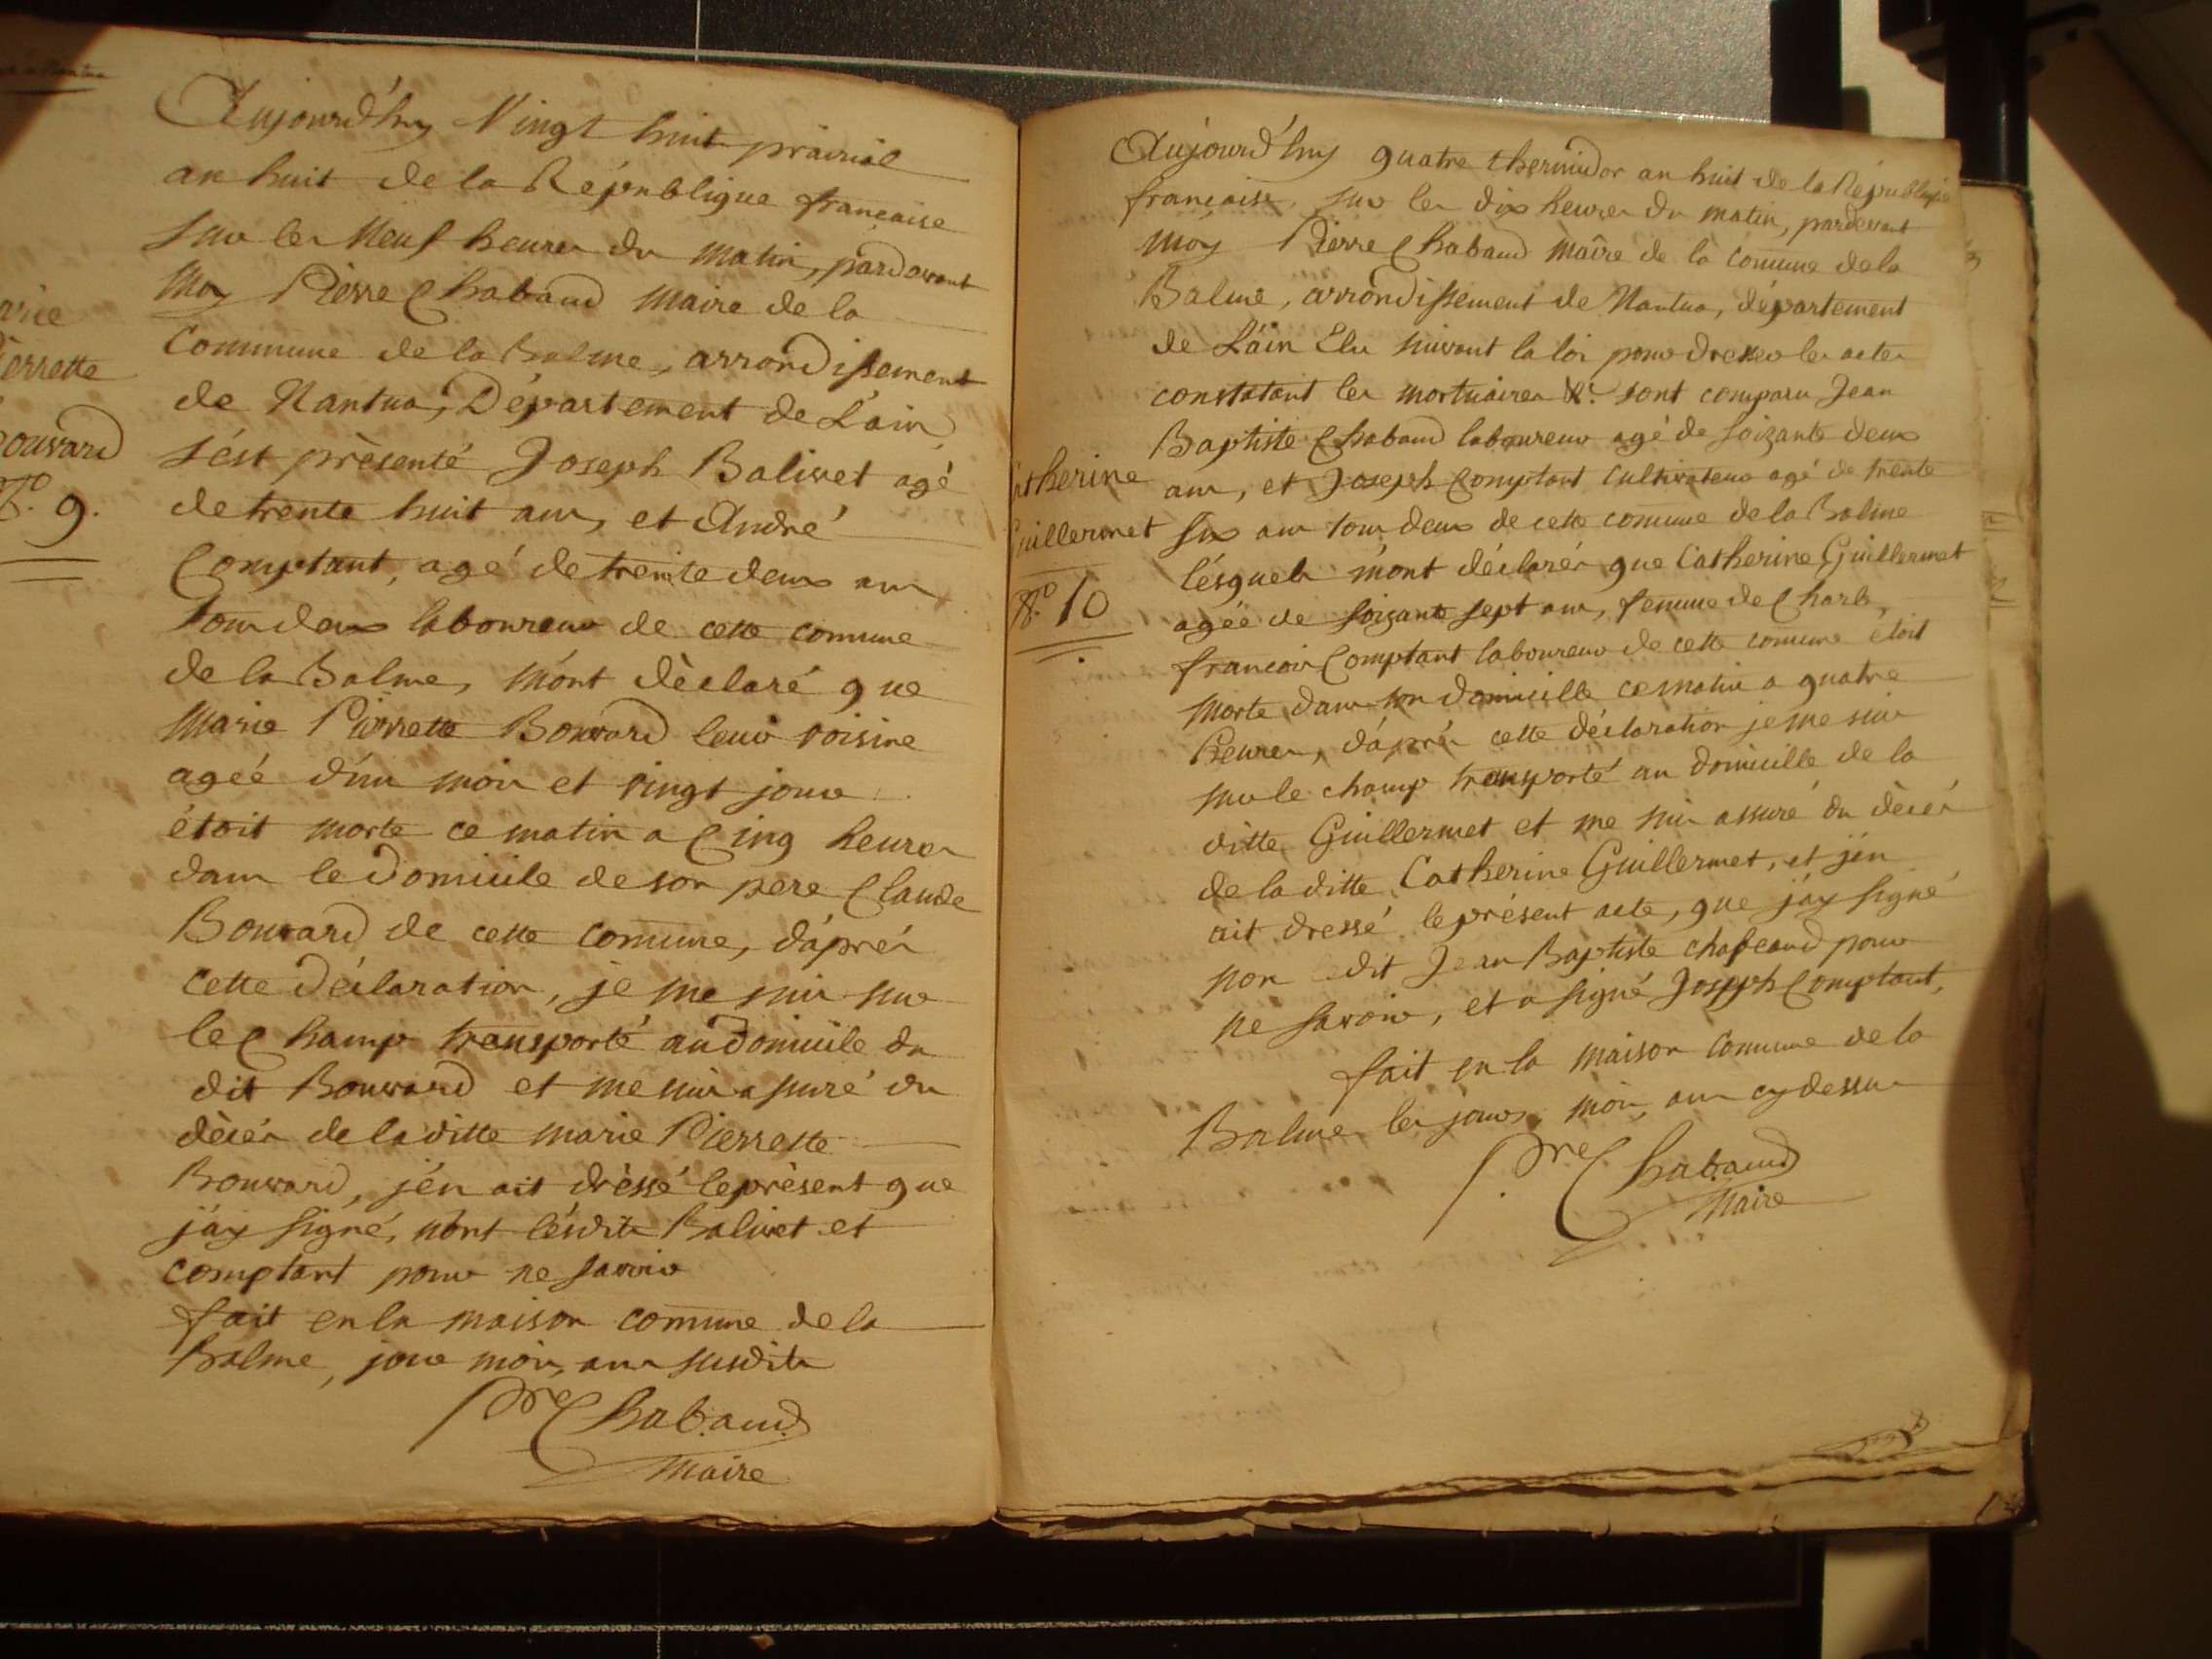 Marie
Pierrette
Bouvard
N.º 9.
Aujourd'huy Vingt huit prairial
an huit de la République françoise
sur les Neuf heures du matin, pardevant
Moy Pierre Chabaud Maire de la
Commune de la Balme, arrondissement
de Nantua, Département de L'ain
s'ést présenté Joseph Balivet agé
de trente huit ans, et André
Comptant, agé de trente deux ans
tous deux laboureur de cette comune
de la Balme, m'ont dèclaré que
Marie Pierrette Bouvard leur voisine
ageé d'un mois et vingt jours
étoit morte ce matin a Cinq heures
dans le Domicile de son pere Claude
Bouvard de cette comune, d'áprés
cette Déclaration, je me suis sur
le Champ transporté au Domicile du
dit Bouvard et me suis assuré du
dècés de la ditte marie Pierrette
Bouvard, j'én ait dréssé le présent que
j'áy signé, nónt lésdits Balivet et
comptant pour ne savoir
fait en la maison comune de la
Balme, jour mois, ans susdits
Pre Chabaud
Maire
Catherine
Guillermet
N.º 10
Aujourd'huy quatre thermidor an huit de la République
françoise, sur les dix heures du matin, pardevant
moy Pierre Chabaud maire de la comune de la
Balme, arrondissement de Nantua, département
de L'áin Elu suivant la loi pour dresser les actes
constatant les mortuaires &c. sont comparu Jean
Baptiste Chabaud laboureur agé de soizante deux
ans, et Joseph Comptant cultivateur agé de trente
six ans tous deux de cette comune de la Balme
lésquels m'ónt déclarés que Catherine Guillermet
agée de soizante sept ans, femme de Charles
francois Comptant laboureur de cette comune étoit
morte dans son domicille ce matin a quatre
heures, d'áprés cette déclaration je me suis
sur le champ transporté au domicille de la
ditte Guillermet et me suis assuré du dècés
de la ditte Catherine Guillermet, et j'én
ait dressé le présent acte, que j'áy signé
non ledit Jean Baptiste chabeaud pour
ne savoir, et a signé Joseph Comptant,
fait en la maison comune de la
Balme les jours, mois, ans cy dessus
Pre Chabaud
Maire